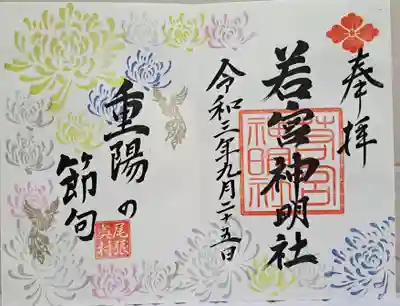 奉拝
若宮神明社
若宮神明社
令和三年九月二十五日
重陽の
節句
尾張
奥村